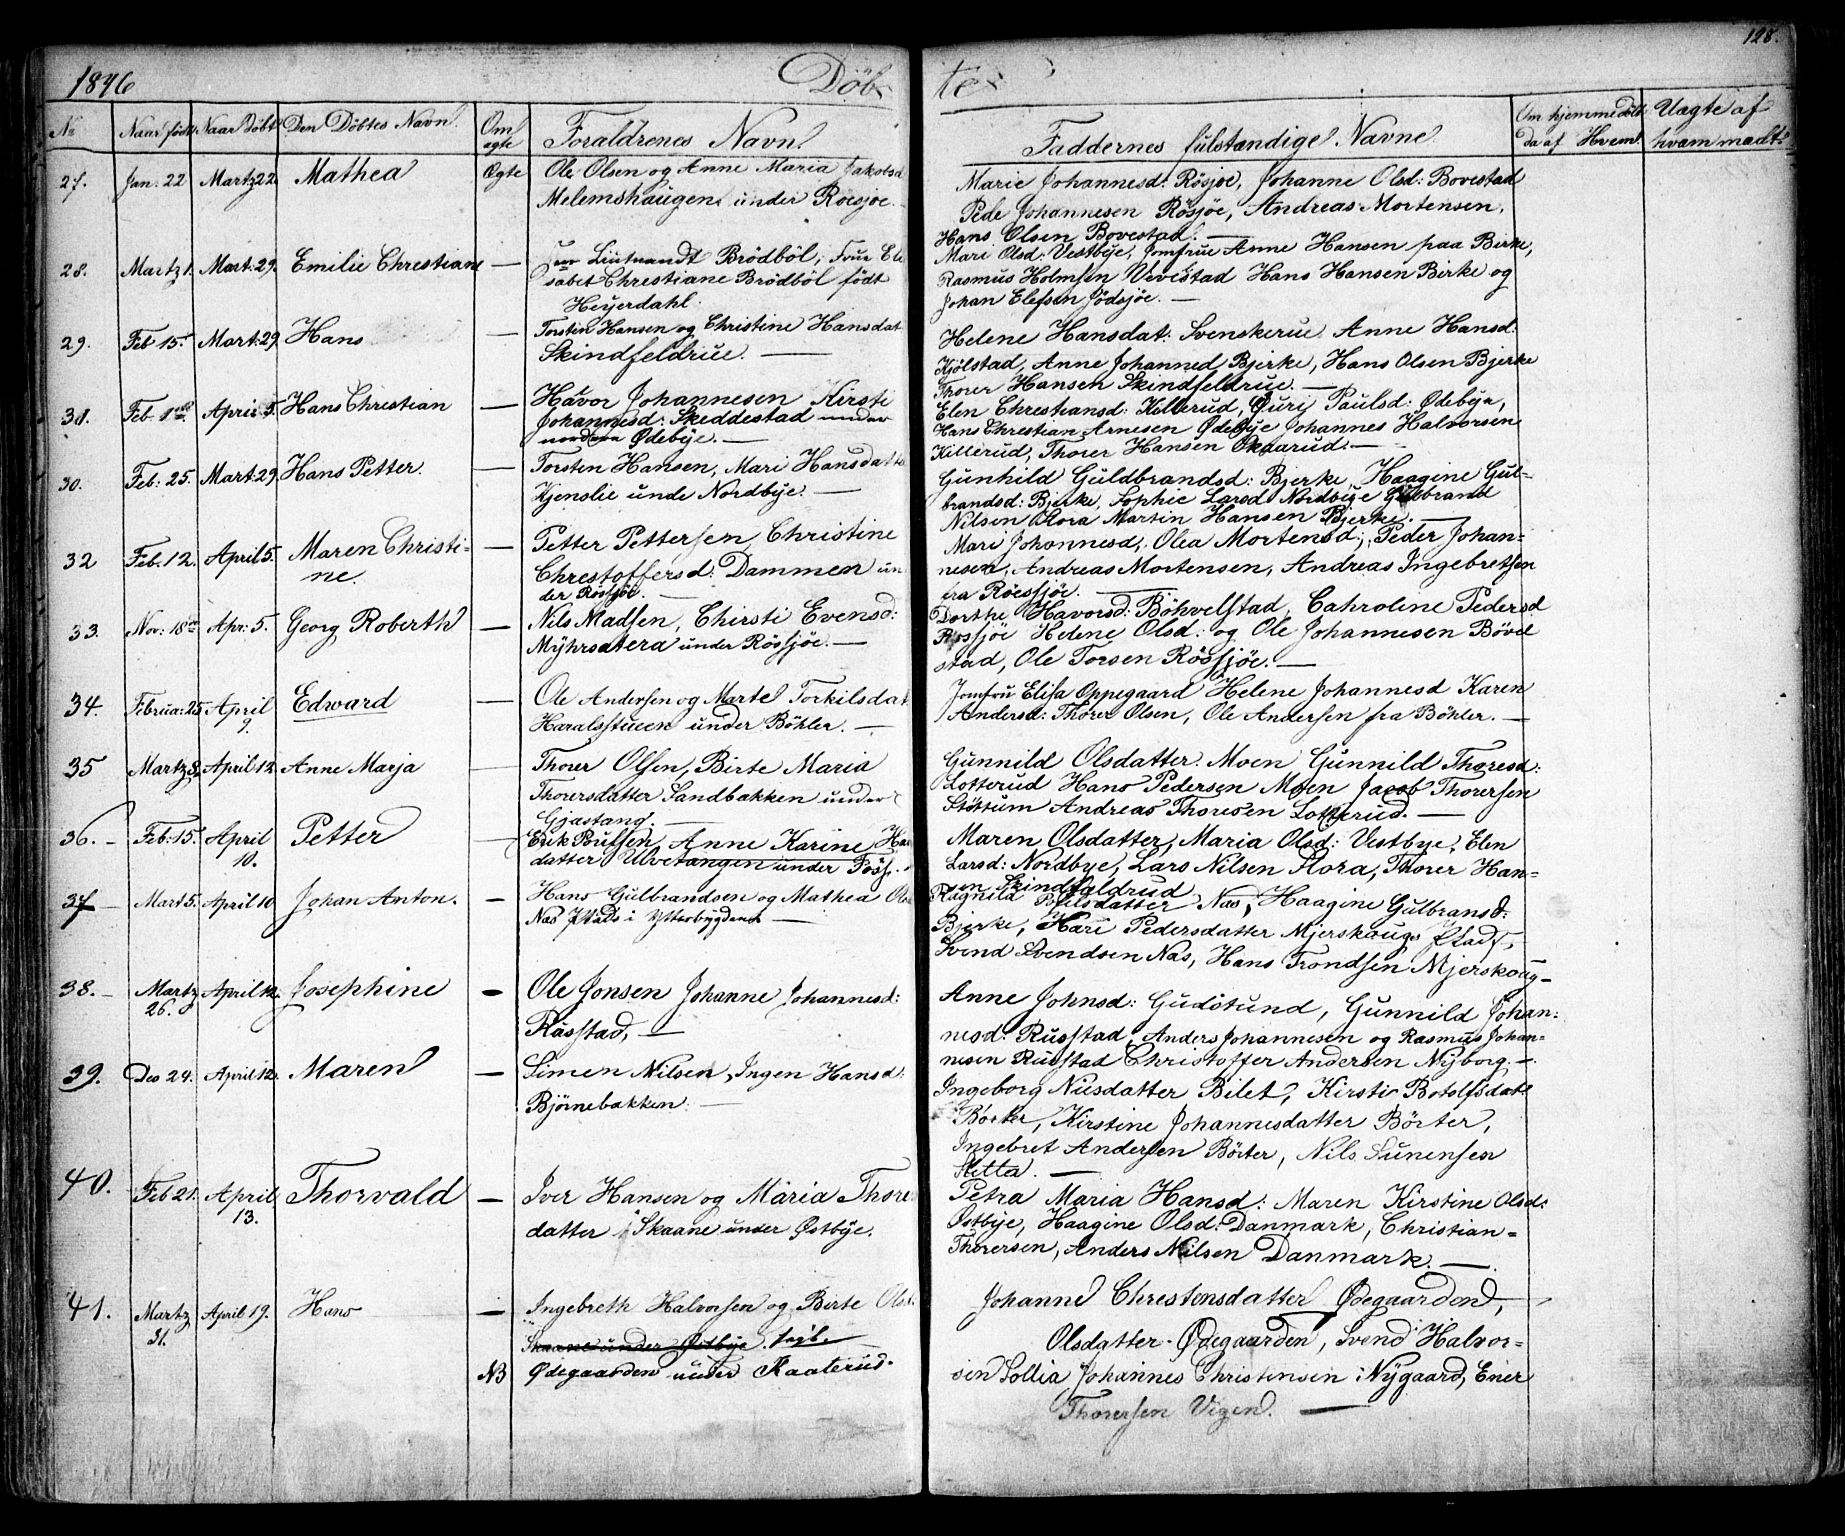 128.
1846 Döbte
No Naar født Naar Döbt Den Döbtes Navn. Om ægte Foraldrenes Navn Faddernes fulstændige Navne Om hjemmedöbt da af Hvem Uægte af hvem mældt
27. Jan: 22 Martz 22. Mathea Ægte Ole Olsen og Anne Maria Jakobsd
Melemshaugen under Roesjoe.
Marie Johannesd: Rösjoe, Johanne Olsd: Bovestad
Pede Johannesen Rösjöe, Andreas Mortensen,
Hans Olsen Bovestad. —
28. Martz 1. Mart: 29. Emilie Chrestiane — Lieutnandt Brödböl; Frue Eli
sabet Chrestiane Brödböl født
Heyerdahl.
Mari Olsd: Vestbye, Jomfrue Anne Hansen paa Birke,
Rasmus Holmsen Vevestad Hans Hansen Birke og
Johan Elefsen Jödsjöe. —
29. Feb 15. Mart: 29 Hans — Torsten Hansen og Christine Hansdat
Skindfeldrue. —
Helene Hansdat: Svenskerue Anne Hansd:
Kjölstad, Anne Johannesd Bjerke, Hans Olsen Bjerke
Thorer Hansen Skindfeldrue. —
31. Feb 1ste April 5. Hans Christian — Havor Johannesen Kirsti
Johannesd: Skeddestad under
nordern Ødebye. —
Elen Chrestiansd: Killerud, Guri Paulsd: Ødebye,
Hans Christian Arnesen Ødebye Johannes Halvorsen
Killerud, Thorer Hansen Skaarud. —
30. Feb: 25. Mart: 29. Hans Petter. — Torsten Hansen, Mari Hansdatte
Kjenslie unde Nordbye. —
Gunhild Guldbrandsd: Bjerke, Haagine Gul-
brandsd: Bjerke, Sophie Larsd Nordbye Gulbrand
Nilsen Flora Martin Hansen Bjerke. —
32 Feb. 12. April 5. Maren Christi-
ne. — Petter Pettersen, Christine
Chrestoffersd: Dammen un
der Rösjöe. —
Mari Johannesd, Olea Mortensd; Peder Johan-
nesen, Andreas Mortensen, Andreas Ingebretsen
fra Röessjöe. —
33. Nov: 18de Apr: 5. Georg Roberth — Nils Madsen, Chirsti Evensd:
Mÿhrsætera under Rössjöe. —
Dorthe Havorsd: Böhvelstad, Cahroline Pedersd
Rossjöe Helene Olsd: og Ole Johannesen Bövel
stad, Ole Torsen Rössjöe. —
34. Februa: 25 April
9. Edward — Ole Andersen og Marte Torkilsdat
Haralsstueen under Böhler. —
Jomfru Elisa Oppegaard Helene Johannesd Karen
Andersd: Thorer Olsen, Ole Andersen fra Böhler. —
35 Martz 8. April 12 Anne Marja — Thorer Olsen, Birte Maria
Thorersdatter Sandbakken under
Gjastang. —
Gunnild Olsdatter. Moen Gunnild Thoresd:
Lotterud Hans Pedersen Moen Jacob Thorersen
Støttum Andreas Thoresen Lotterud. —
36. Feb: 15. April
10. Petter — Erik Poulsen, Anne Karine Ha
datter Ulvetangen under Föss
Maren Olsdatter, Maria Olsd: Vestbye, Elen
Larsd: Nordbye, Lars Nilsen Flora, Thorer Han-
sen Skindfaldrud
37 Mart 5. April 10 Johan Anton. — Hans Gulbrandsen og Mathea Ols
Næs Plads i Ytterbygden —
Ragnild Nilsdatter Næs, Haagine Gulbransd:
Bjerke, Kari Pedersdatter Mjerskougs Plads,
Svend Svendsen Næs, Hans Trondsen Mjerskoug-
38. Martz
26. April 12. Josephine — Ole Jonsen Johanne Johannesd:
Rässtad, —
Anne Johnsd: Gudstund, Gunnild Johan:
nesd: Russtad, Anders Johannesen og Rasmus Johan-
nesen Russtad Christoffer Andersen Nÿborg. —
39. Des 24. April 12. Maren — Simen Nilsen, Ingen Hansd:
Bjørnebakken. —
Ingeborg Nilsdatter Bilet, Kirsti Botolfsdat
Borter, Kirstine Johannesdatter Börter,
Ingebret Andersen Börter, Nils Sunensen
Sletta. —
40. Feb 21. April
13. Thorvald — Iver Hansen og Maria Thore
datter i Skaane under Østbÿe.
Petra Maria Hansd: Maren Kirstine Olsd:
Østbÿe, Haagine Olsd: Danmark, Christian-
Thorersen, Anders Nilsen Danmark. —
41. Martz
31. April 19. Hans — Ingebreth Halvorsen og Birte Olsd
Skaane under Østbye. fejl.
NB Ødegaarden under Kaalerud.
Johanne Chrestensdatter Ødegaarden,
Olsdatter Ødegaarden, Svend Halvor-
sen Sollia Johannes Christensen Nÿgaard, Ener
Thorersen Vigen. —